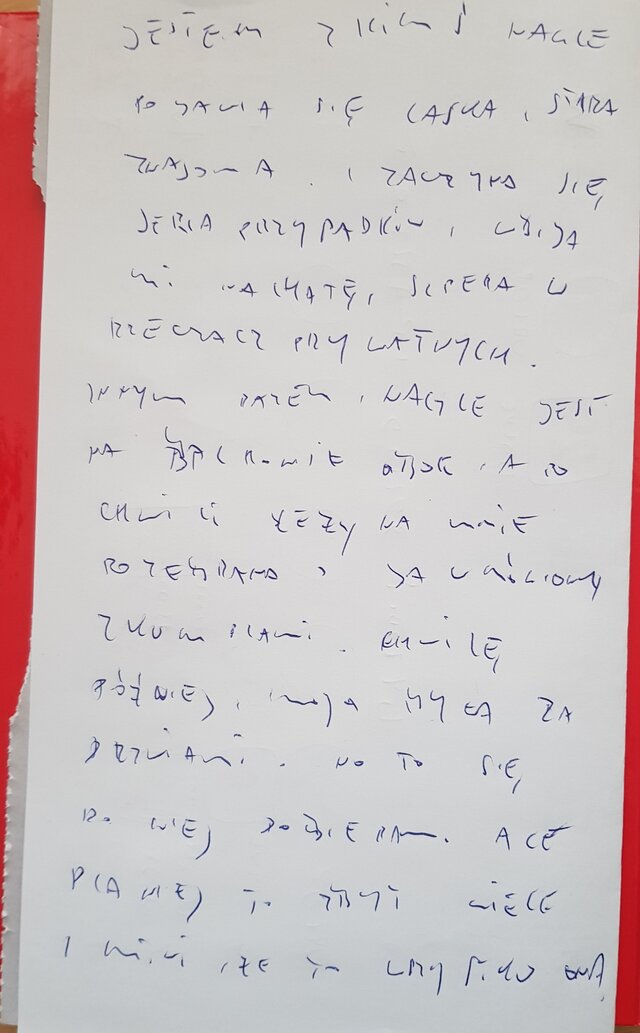 JESTEM Z KIMŚ NAGLE
POJAWIA SIĘ LASKA, STARA
ZNAJOMA. I ZACZYNA SIĘ
SERIA PRZYPADKÓW, WBIJA
MI NA CHATĘ, SZPERA W
RZECZACZ PRYWATNYCH.
INNYM RAZEM, NAGLE JEST
NA OBOK, A PO
CHWILI LEŻY NA MNIE
ROZEBRANA, JA WKÓŁ
Z KUMPLAMI. CHWILĘ
PÓŹNIEJ, MOJA ZA
DRZWIAMI. NO TO SIĘ
DO NIEJ DOBIERAM. ALE
PLANIE) TO ZBYT WIELE
I MÓWI, ŻE TO WSZYSTKO ONA,